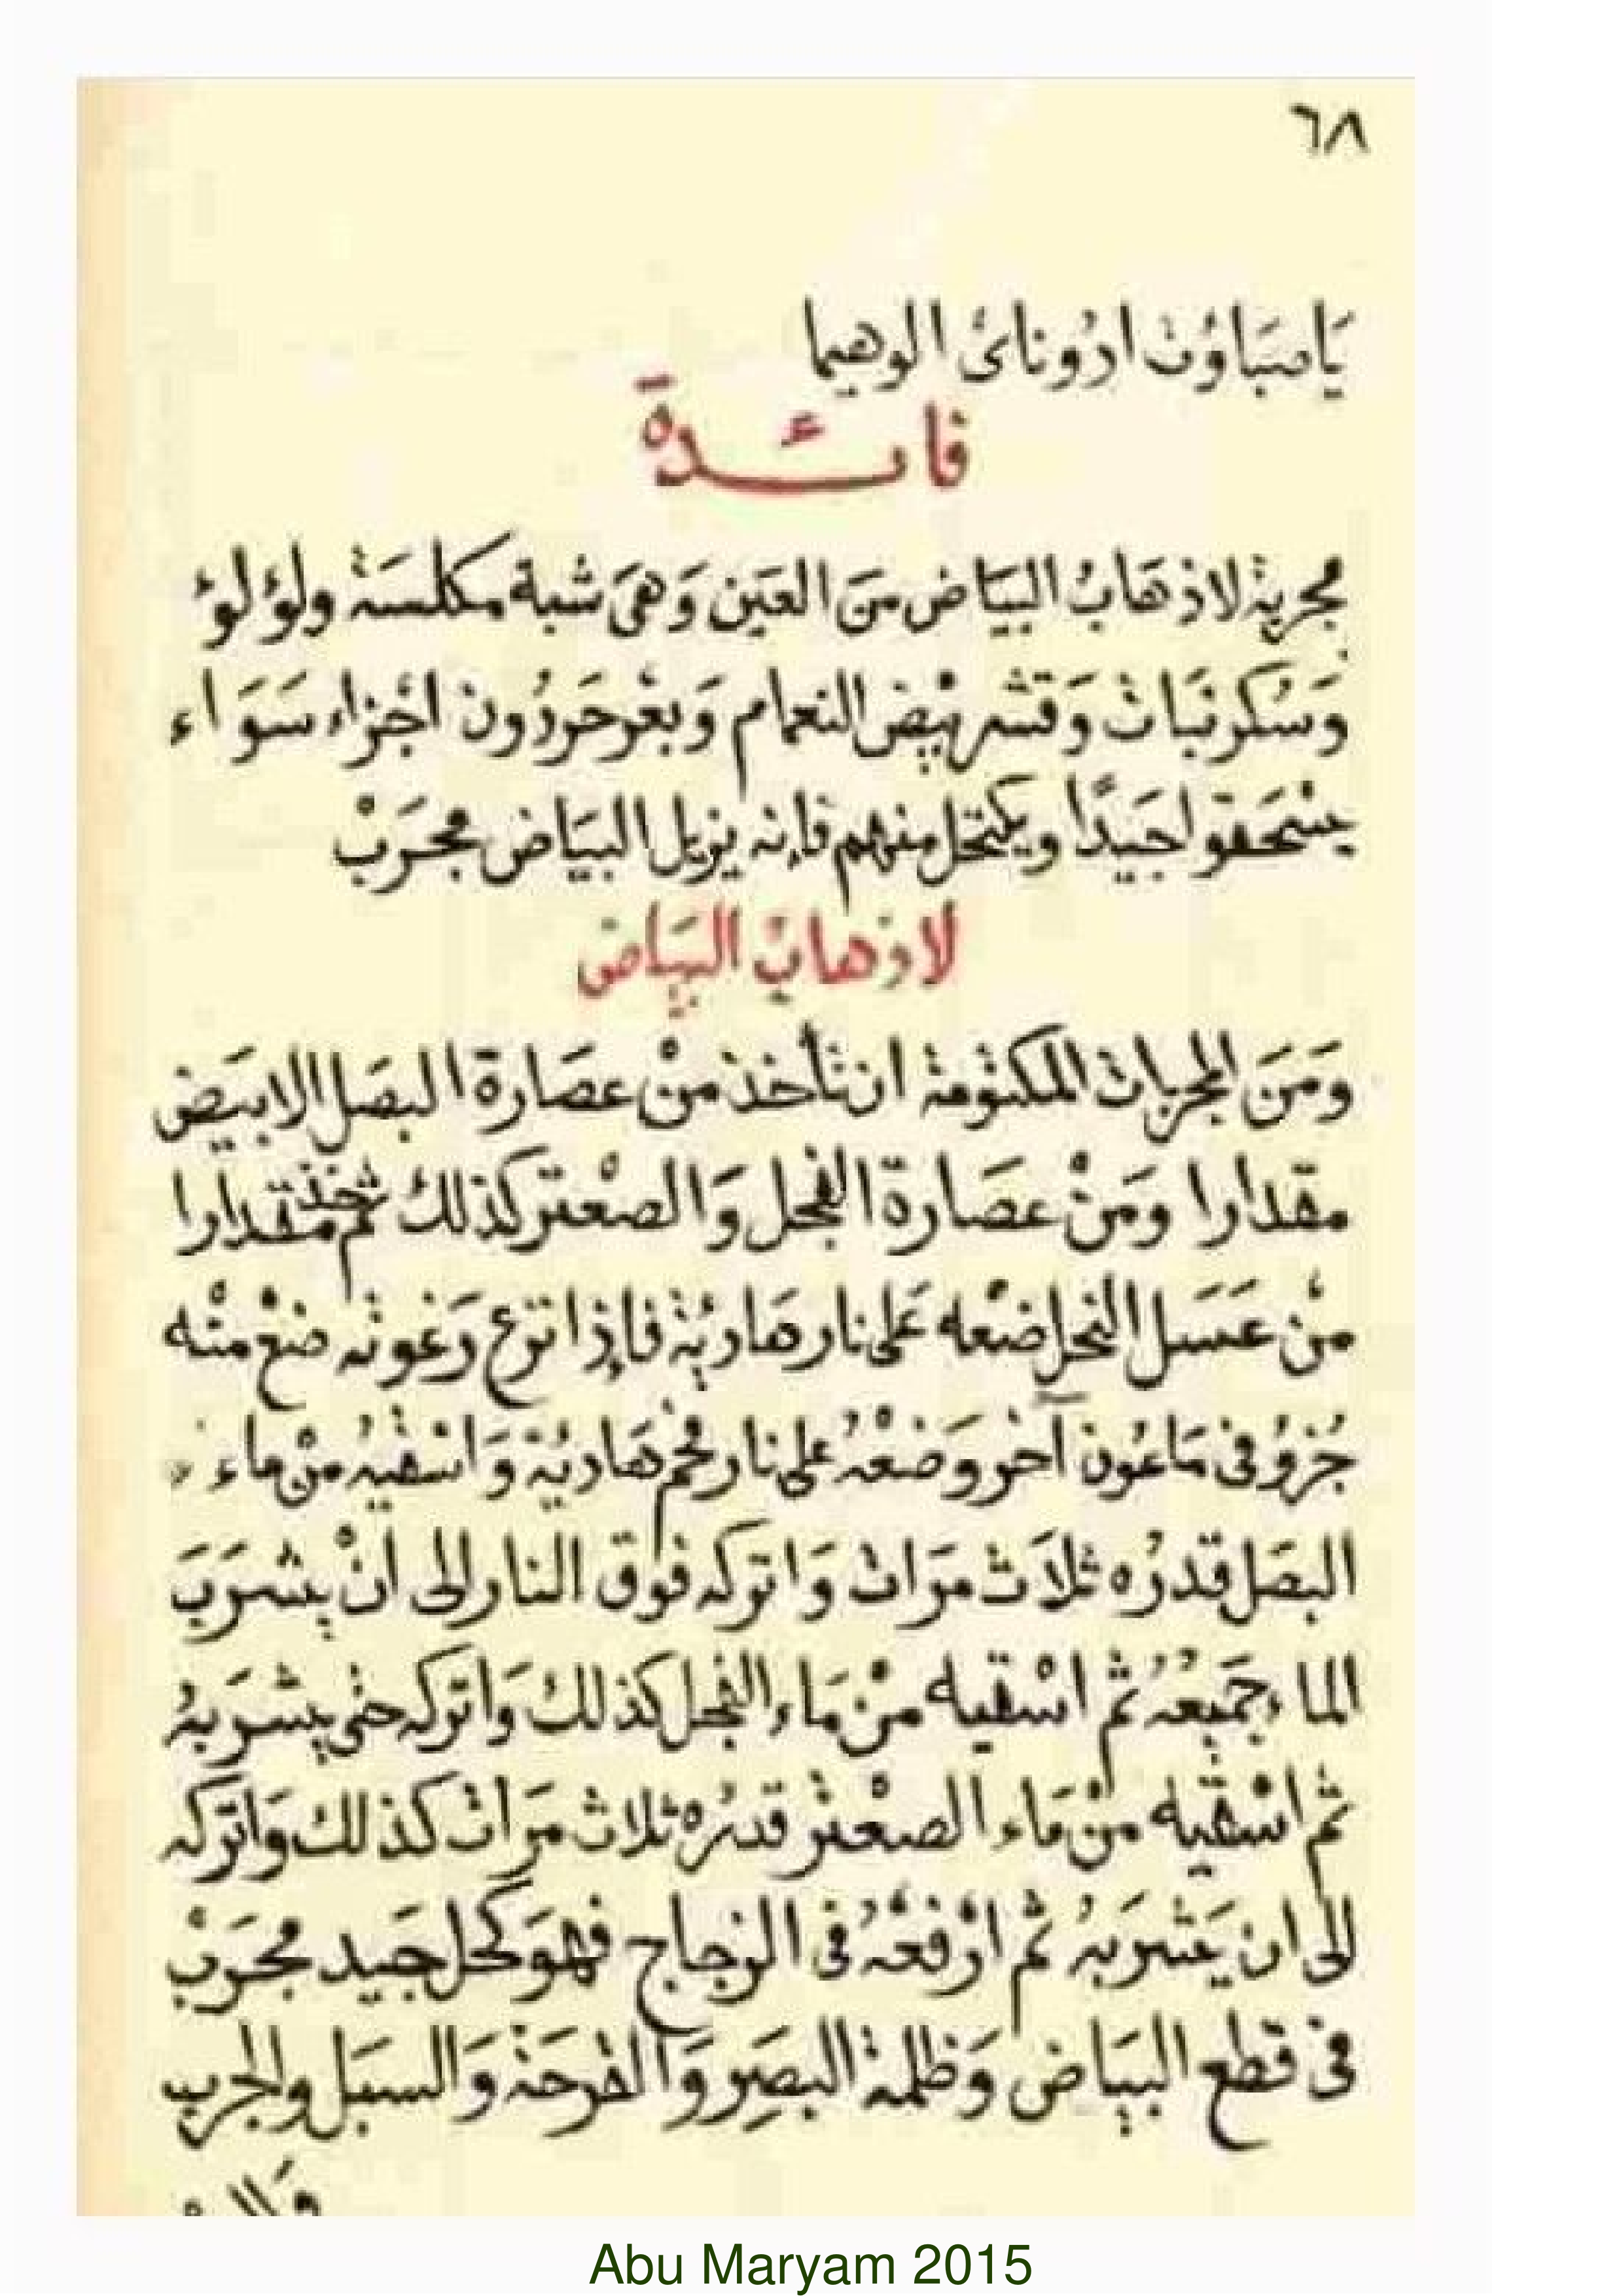 ٦٨
يَاصَبَاؤُتْ ادُونَائ الوهيما
فائدة
مجربة لاذهَابُ البيَاض منَ العَين وَهىَ شبة مكلسَة ولؤلؤ
وَسُكرنبَات وَقشر بيْض النعام وَبعْر حَردُون اجْزاء سَوَاء
يسْحَقوا جَيدًا ويكتحل منهم فإنه يزيل البيَاض مجَرَبْ
لاذهابُ البيَاض
ومَنَ المجربات المكتومة ان تأخذ منْ عصَارة البصَل الابيَض
مقدارا ومَنْ عصَارة الفجل وَالصعْتر كذلك ثم خذ مقدارا
منْ عَسَل النحل ضعْه عَلى نار هَاديَة فإذا نزع رَغوته ضعْ منْه
جُزؤ فى مَاعُون آخر وَضعْهُ على نار فحم هَاديَة وَاسْقيهُ منْ ماء
البصَل قدرُه ثلاَث مرَات وَاتركه فوْق النار الى انْ يشرَبَ
الماء جَميعُهُ ثم اسْقيه منْ مَاء الفجل كذلك وَاتركه حتى يشرَبهُ
ثم اسْقيه منْ مَاء الصعْتر قدرُه ثلاث مرَات كذلك وَاتركه
الى ان يَشرَبهُ ثم ارْفعْهُ فى الزجاج فهوَ كحل جَيد مجَرَبْ
فى قطع البيَاض وَظلمة البصَر وَالقرحَة وَالسبَل والجرب
Abu Maryam 2015